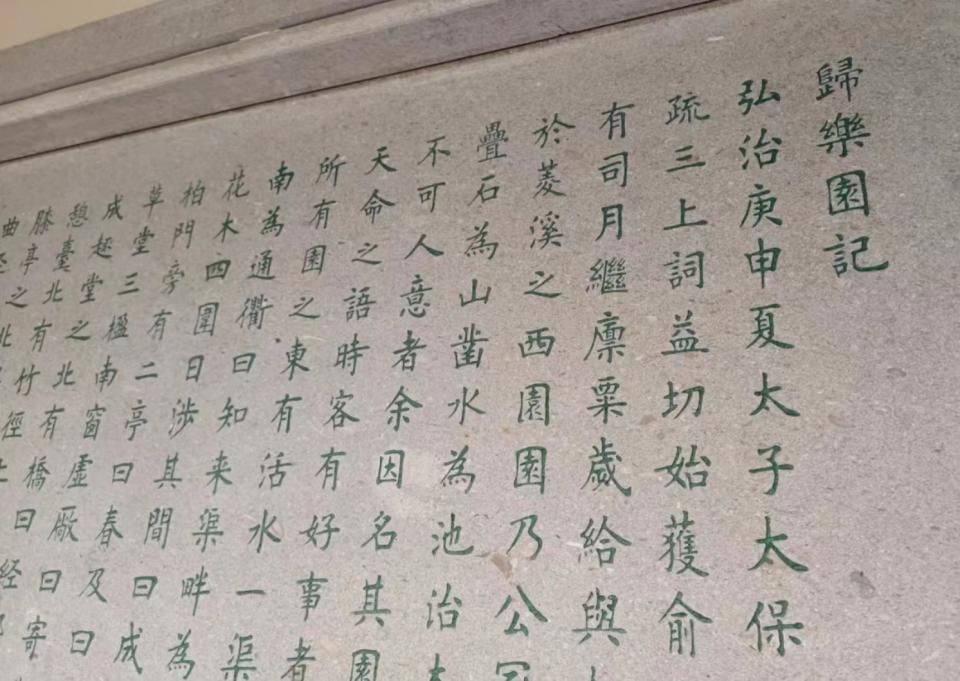 歸樂園記
弘治庚申夏太子太保
疏三上詞益切始獲俞
有司月繼廪粟歲給與
於菱溪之西園園乃公
疊石為山凿水為池治
不可人意者余因名其園
天命之語時客有好事者
所有園之東有活水一渠
南為通衢曰知来渠畔為
花木四圍日涉其間曰成
柏門旁有二亭曰春及曰
草堂三楹南窗虛厰曰寄
成趣堂之北有橋曰
憩臺北有竹徑
膝亭
曲